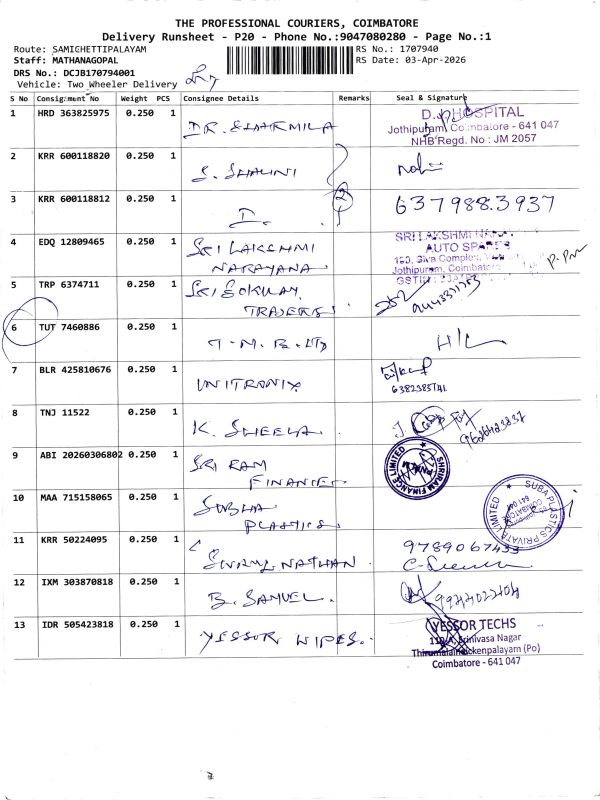 THE PROFESSIONAL COURIERS, COIMBATORE
Delivery Runsheet - P20 - Phone No.:9047080280 - Page No.:1
Route: SAMICHETTIPALAYAM RS No.: 1707940
Staff: MATHANAGOPAL RS Date: 03-Apr-2026
DRS No.: DCJB170794001
Vehicle: Two Wheeler Delivery
S No Consignment No Weight PCS Consignee Details Remarks Seal & Signature
1 HRD 363825975 0.250 1 DR. SHARMILA
HOSPITAL
Jothipuram, Coimbatore - 641 047
NHB Regd. No : JM 2057
2 KRR 600118820 0.250 1 S. SHALINI
3 KRR 600118812 0.250 1 D. 2 637988.3937
4 EDQ 12809465 0.250 1 SRI LAKSHMI
NARAYANA
SRI LAKSHMI
AUTO SPARES
Jothipuram, Coimbatore
5 TRP 6374711 0.250 1 SRI GOKULAM
TRADERS
6 TUT 7460886 0.250 1 T.M.B. LTD H/C
7 BLR 425810676 0.250 1 UNITRONIX
8 TNJ 11522 0.250 1 K. SHEELA
9 ABI 20260306802 0.250 1 SRI RAM
FINANCE
SHRIRAM FINANCE LIMITED
10 MAA 715158065 0.250 1 SUBHA
PLASTICS
SUBA PLASTICS PRIVATE LIMITED
COIMBATORE
641 047
11 KRR 50224095 0.250 1 NATHAN 9789067433
12 IXM 303870818 0.250 1 B. SAMUEL.
13 IDR 505423818 0.250 1 YESSOR WIPES.
YESSOR TECHS
Srinivasa Nagar
(Po)
Coimbatore - 641 047